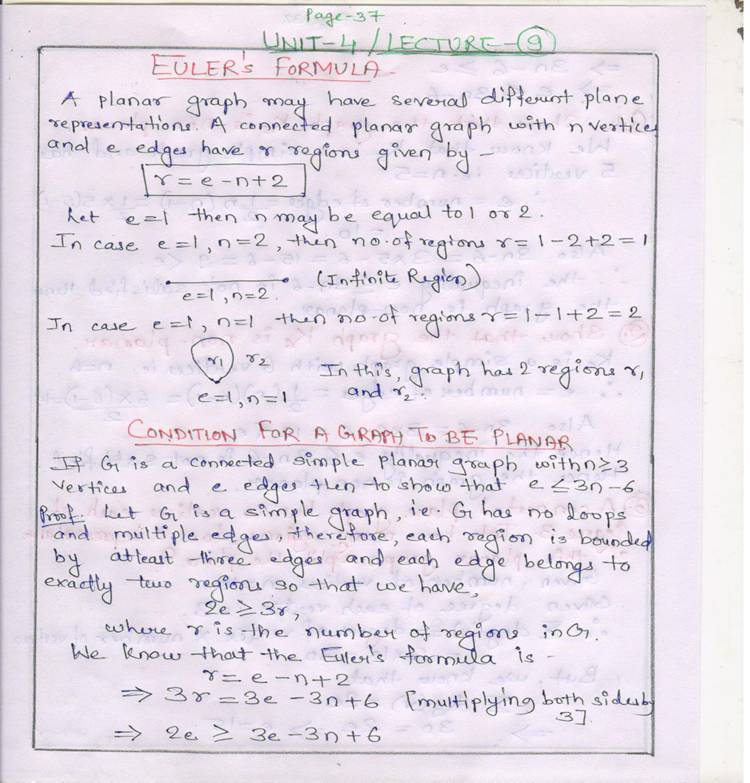 Page-37
UNIT-4/LECTURE-9
EULER's FORMULA-
A planar graph may have several different plane
representations. A connected planar graph with n vertices
and e edges have r regions given by -
r = e-n+2
Let e=1 then n may be equal to 1 or 2.
In case e=1, n=2, then no. of regions r = 1-2+2 = 1
(Infinite Region)
e=1, n=2.
In case e=1, n=1 then no. of regions r = 1-1+2 = 2
r1 r2
In this, graph has 2 regions r1
and r2.
e=1, n=1
CONDITION FOR A GRAPH TO BE PLANAR
If G is a connected simple planar graph with n≥3
vertices and e edges then to show that e ≤ 3n-6
Proof. Let G is a simple graph, i.e. G has no loops
and multiple edges, therefore, each region is bounded
by atleast three edges and each edge belongs to
exactly two regions so that we have,
2e ≥ 3r,
where r is the number of regions in G.
We know that the Euler's formula is -
r = e-n+2
⇒ 3r = 3e-3n+6 [multiplying both sides by
3].
⇒ 2e ≥ 3e-3n+6